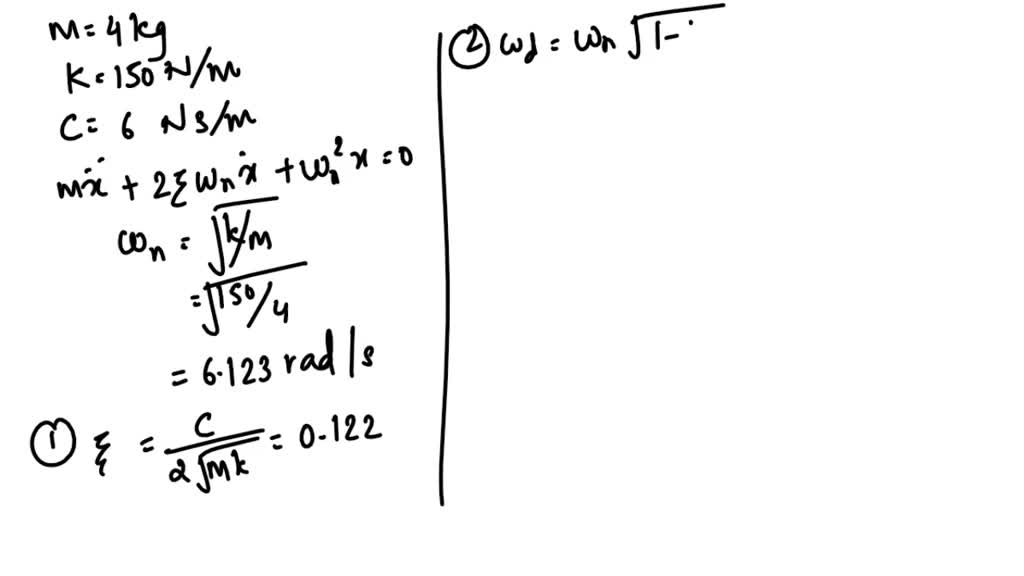 M = 4 kg
K = 150 N/m
C = 6 NS/m
mẍ + 2ξωₙẋ + ωₙ²x = 0
ωₙ = √k/m
= √150/4
= 6.123 rad/s
① ξ = C / 2√mk = 0.122
② ωd = ωₙ √1-